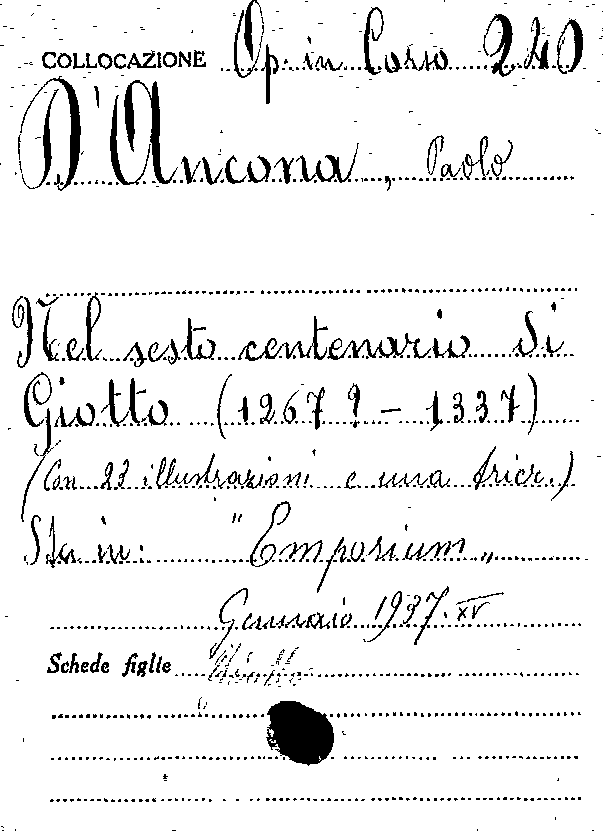 COLLOCAZIONE Op. in Corso 240
D'Ancona, Paolo
Nel sesto centenario di
Giotto (1267? - 1337)
(Con 23 illustrazioni e una tricr.)
Sta in: "Emporium"
Gennaio 1937. XV
Schede figlie Giotto
"